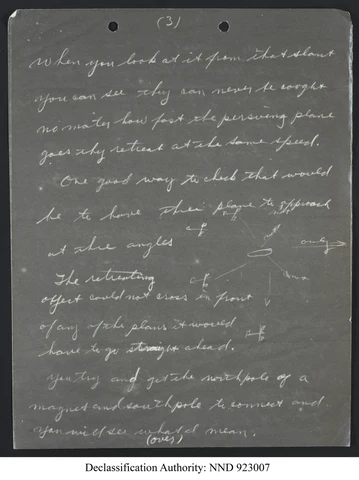 (3)
When you look at it from that slant
you can see they can never be caught
no mater how fast the persuing plane
goes they retreat at the same speed.
One good way to check that would
be to have three plane to approach
at three angles
only
The retreating
object could not cross in front
of any of the plans it would
have to go straight ahead.
You try and get the north pole of a
magnet and south pole to connect and
you will see what I mean.
(over)
Declassification Authority: NND 923007